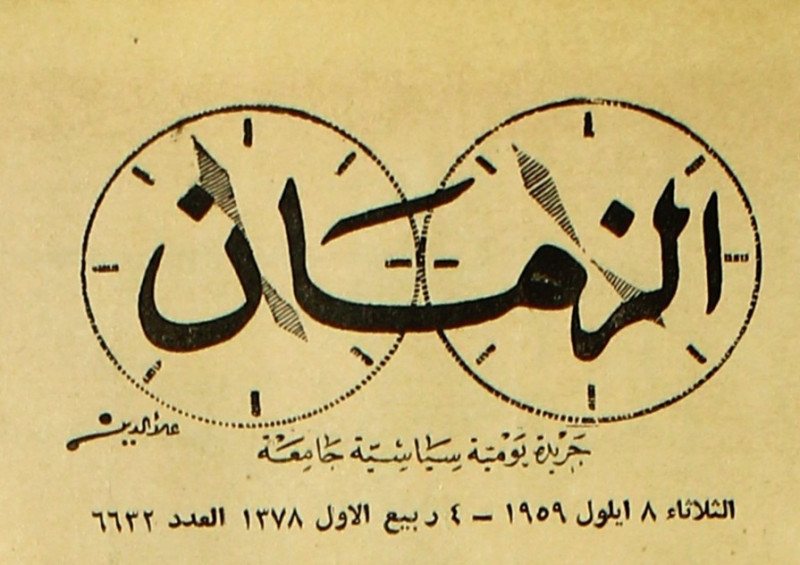 الزمان
علاء الدين
جريدة يومية سياسية جامعة
الثلاثاء ٨ ايلول ١٩٥٩ – ٤ ربيع الاول ١٣٧٨ العدد ٦٦٣٢